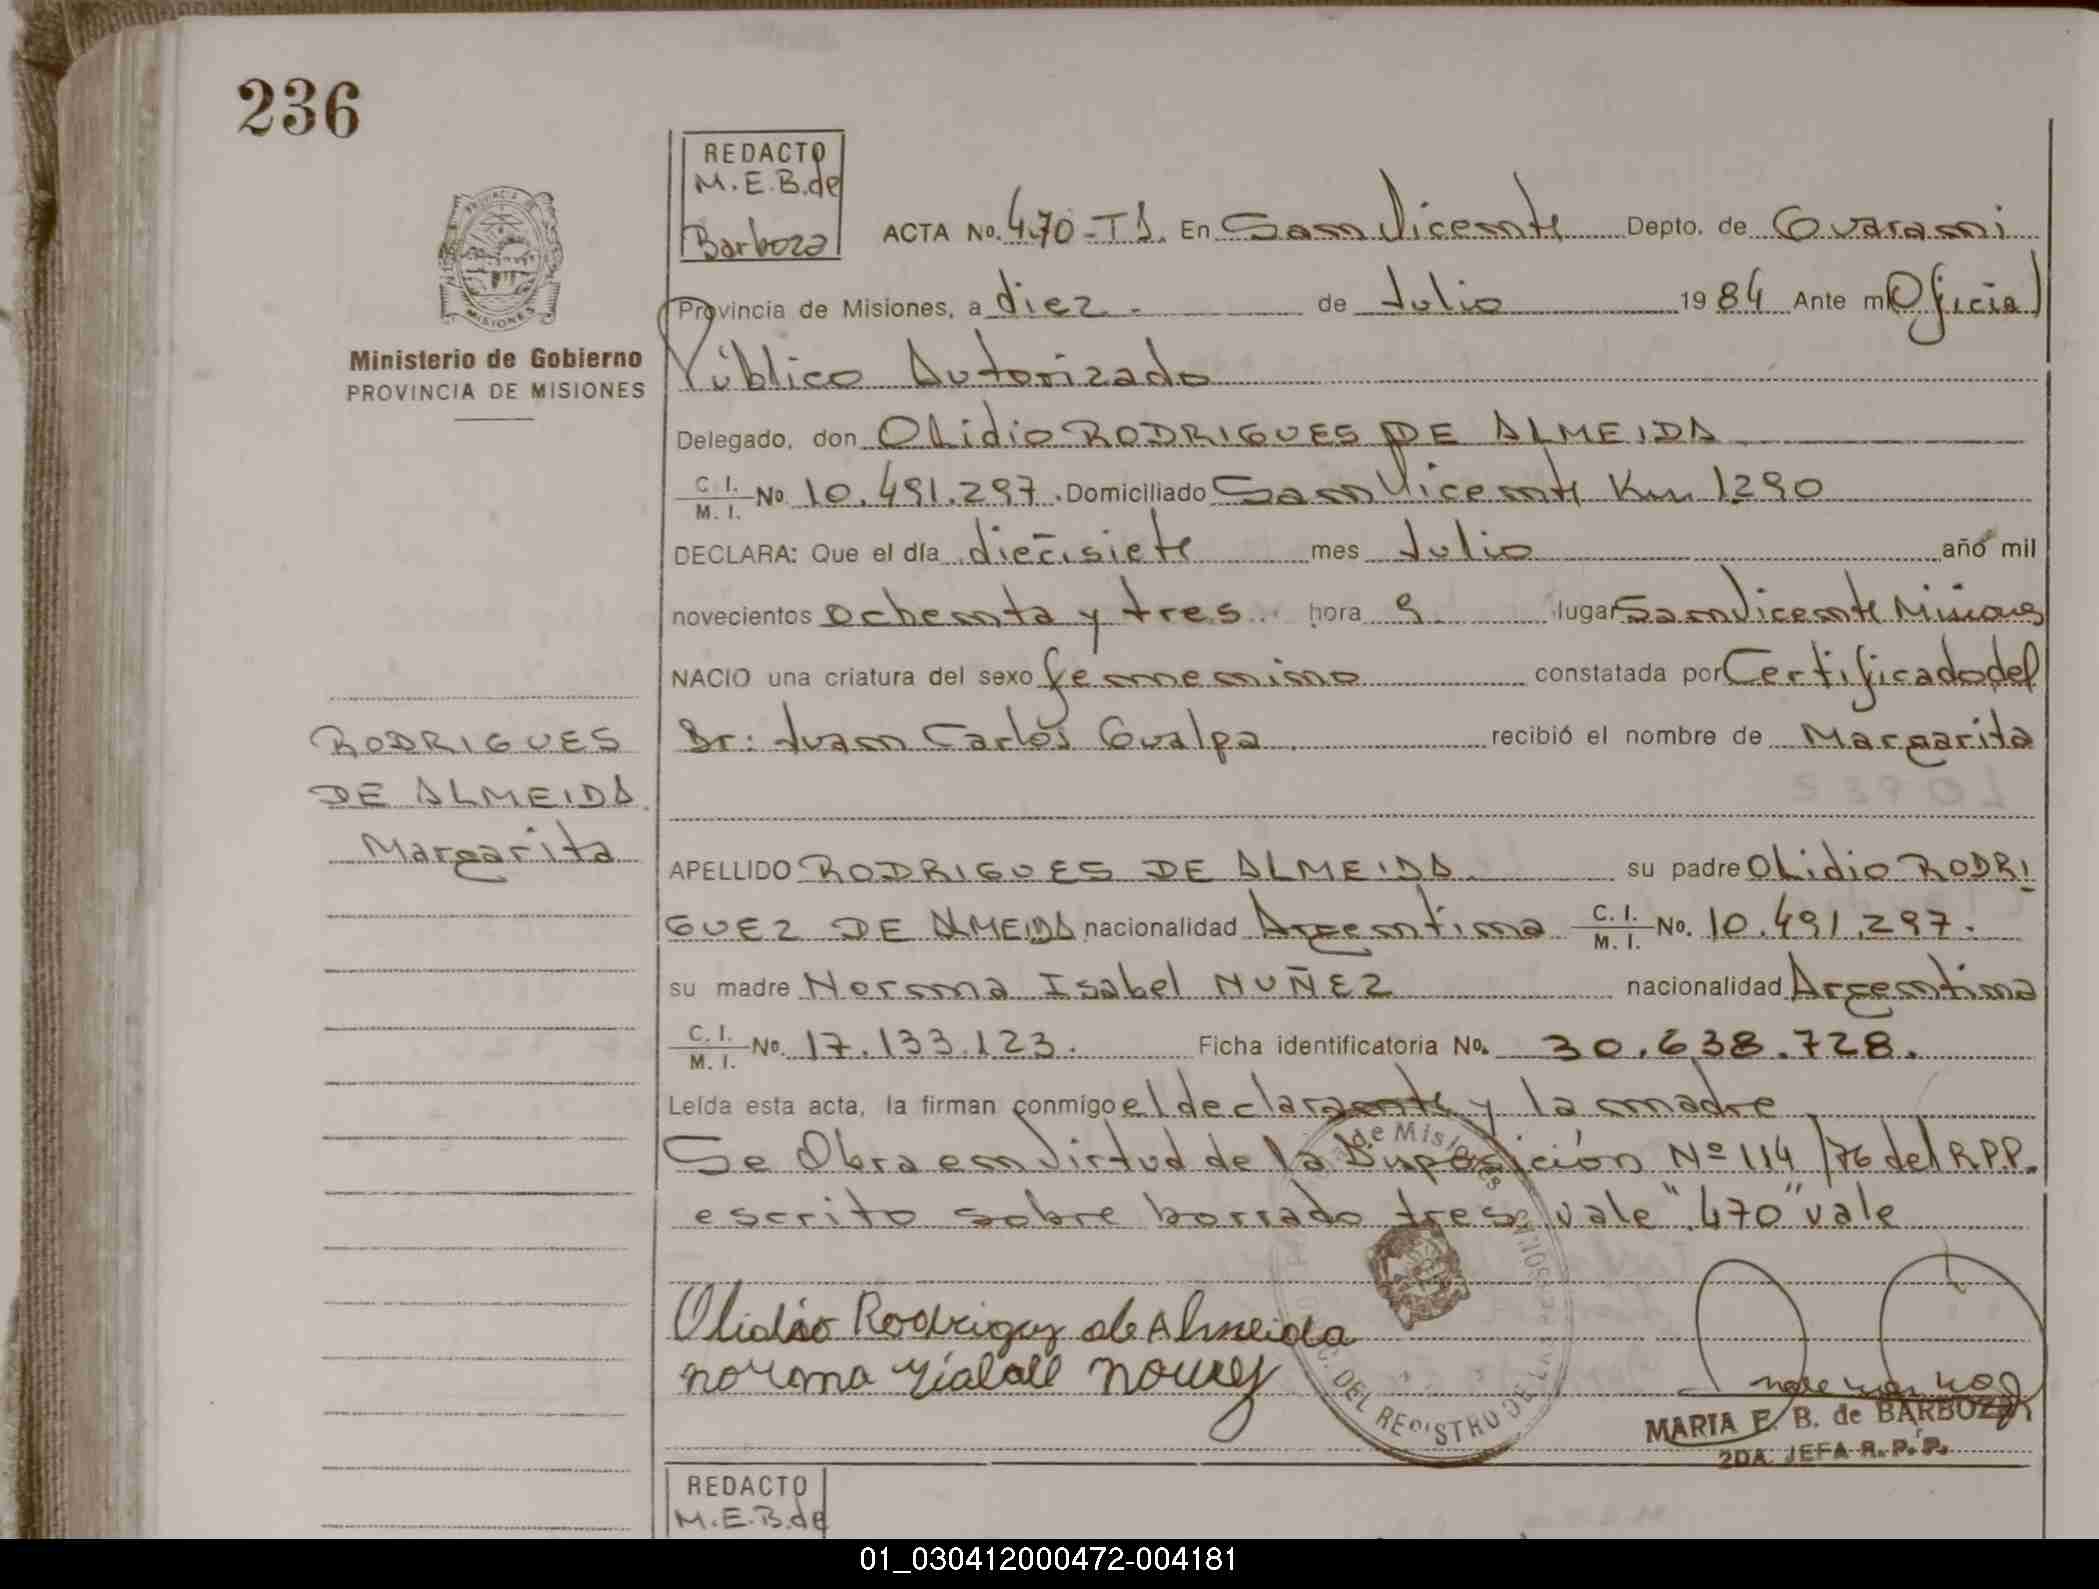 236
REDACTO
M.E.B.de
Barboza
ACTA No. 470-T1. En San Vicente Depto. de Guarani
Provincia de Misiones, a diez.- de Julio 1984 Ante mi Oficial
Público Autorizado
Ministerio de Gobierno
PROVINCIA DE MISIONES
Delegado, don OLidio RODRIGUES DE ALMEIDA
C. I. / M. I. No. 10.491.297. Domiciliado San Vicente Km 1290
DECLARA: Que el día diecisiete mes Julio año mil
novecientos ochenta y tres. hora 9. lugar San Vicente Misiones
NACIO una criatura del sexo femenino constatada por Certificado del
Dr: Juan Carlos Gualpa recibió el nombre de Margarita
RODRIGUES
DE ALMEIDA.
Margarita
APELLIDO RODRIGUES DE ALMEIDA su padre OLidio RODRI
GUEZ DE ALMEIDA nacionalidad Argentina C. I. / M. I. No. 10.491.297.
su madre Norma Isabel NUÑEZ nacionalidad Argentina
C. I. / M. I. No. 17.133.123. Ficha identificatoria No. 30.638.728.
Leída esta acta, la firman conmigo el declarante y la madre
Se Obra en Virtud de la Disposición Nº 114/76 del R.P.P.
escrito sobre borrado tres vale "470" vale
Olidio Rodriguez de Almeida
MARIA E. B. de BARBOZA
2DA. JEFA R. P. P.
DEL REGISTRO DE LAS PERSONAS
de Misiones
REDACTO
M.E.B.de
01_030412000472-004181